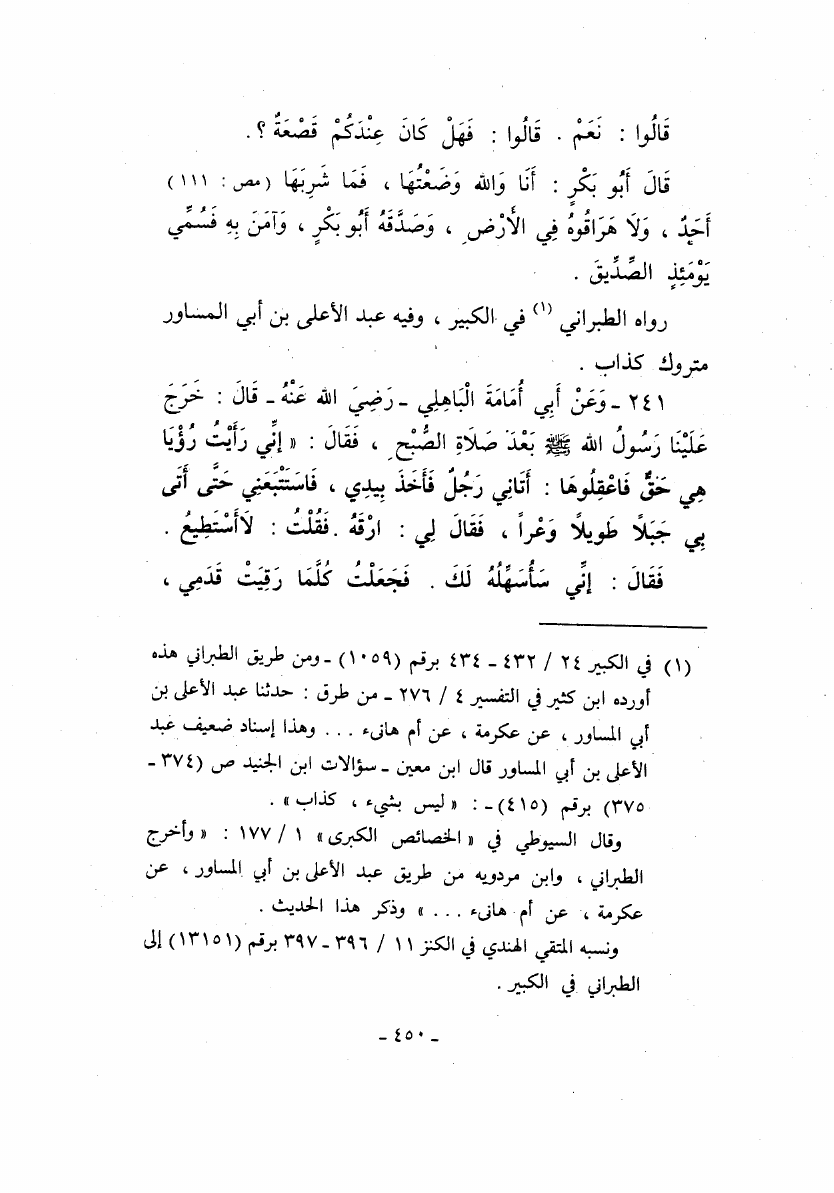 قَالُوا : نَعَمْ . قَالُوا : فَهَلْ كَانَ عِنْدَكُمْ قَصْعَةٌ ؟.
قَالَ أَبُو بَكْرٍ : أَنَا وَالله وَضَعْتُهَا ، فَمَا شَرِبَهَا (مص : ١١١)
أَحَدٌ ، وَلَا هَرَاقُوهُ فِي الأَرْضِ ، وَصَدَّقَهُ أَبُو بَكْرٍ ، وَآمَنَ بِهِ فَسُمِّي
يَوْمَئِذٍ الصِّدِّيقَ .
رواه الطبراني (١) في الكبير ، وفيه عبد الأعلى بن أبي المساور
متروك كذاب .
٢٤١ - وَعَنْ أَبِي أُمَامَةَ الْبَاهِلِي - رَضِيَ الله عَنْهُ - قَالَ : خَرَجَ
عَلَيْنَا رَسُولُ الله ﷺ بَعْدَ صَلَاةِ الصُّبْحِ ، فَقَالَ : « إنِّي رَأَيْتُ رُؤْيَا
هِي حَقٌّ فَاعْقِلُوهَا : أَتَانِي رَجُلٌ فَأَخَذَ بِيدِي ، فَاسْتَتْبَعَنِي حَتَّى أَتَى
بِي جَبَلًا طَوِيلًا وَعْراً ، فَقَالَ لِي : ارْقَهْ . فَقُلْتُ : لَاأَسْتَطِيعُ .
فَقَالَ : إنِّي سَأُسَهِّلُهُ لَكَ . فَجَعَلْتُ كُلَّمَا رَقِيَتْ قَدَمِي ،
(١) في الكبير ٢٤ / ٤٣٢ - ٤٣٤ برقم (١٠٥٩) - ومن طريق الطبراني هذه
أورده ابن كثير في التفسير ٤ / ٢٧٦ - من طرق : حدثنا عبد الأعلى بن
أبي المساور ، عن عكرمة ، عن أم هانىء ... وهذا إسناد ضعيف عبد
الأعلى بن أبي المساور قال ابن معين - سؤالات ابن الجنيد ص (٣٧٤ -
٣٧٥) برقم (٤١٥) - : « ليس بشيء ، كذاب » .
وقال السيوطي في « الخصائص الكبرى » ١ / ١٧٧ : « وأخرج
الطبراني ، وابن مردويه من طريق عبد الأعلى بن أبي المساور ، عن
عكرمة ، عن أم هانىء ... » وذكر هذا الحديث .
ونسبه المتقي الهندي في الكنز ١١ / ٣٩٦ - ٣٩٧ برقم (١٣١٥١) إلى
الطبراني في الكبير .
- ٤٥٠ -